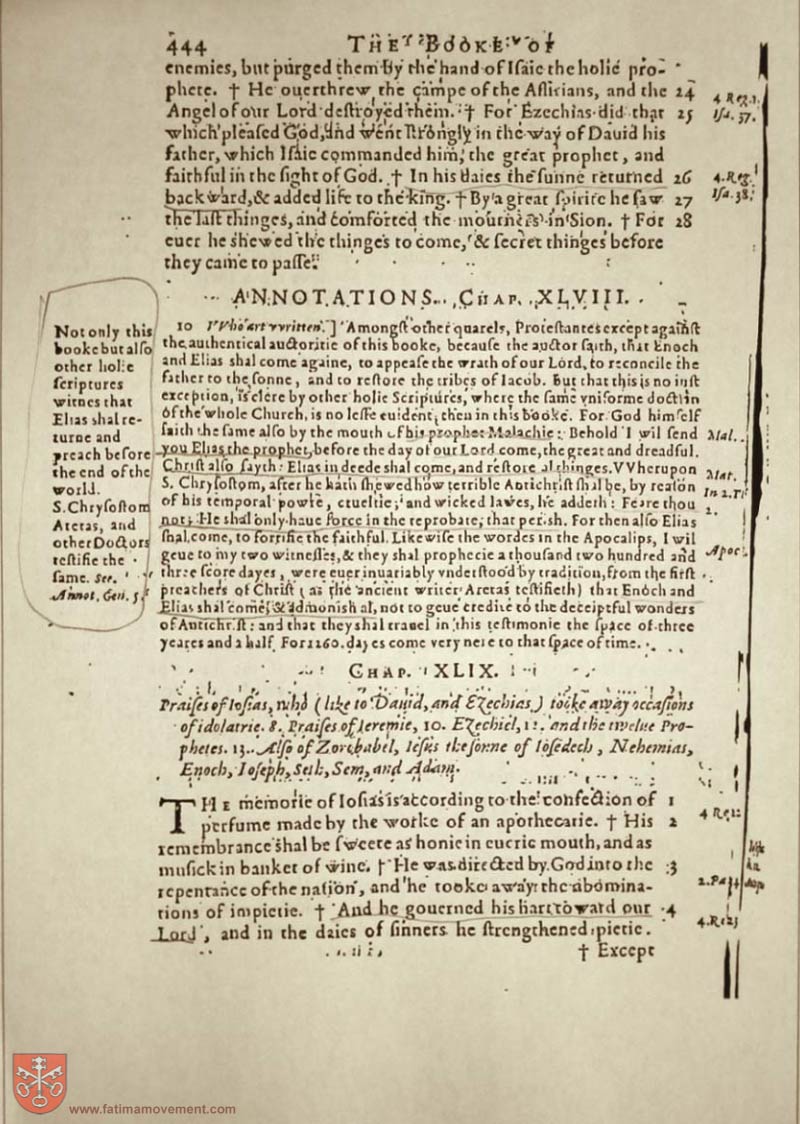 444 THE BOOKE OF
enemies, but purged them by the hand of Isaie the holie pro-
phete. † He ouerthrew the campe of the Assirians, and the 24
Angel of our Lord destroyed them. † For Ezechias did that 25
which pleased God, and went strongly in the way of Dauid his
father, which Isaie commanded him, the great prophet, and
faithful in the sight of God. † In his daies the sunne returned 26
backward, & added life to the king. † By a great spirite he saw 27
the last thinges, and comforted the mourners in Sion. † For 28
euer he shewed the thinges to come, & secret thinges before
they came to passe.
4 Reg.
Isa. 37.
4. Reg.
Isa. 38.
ANNOTATIONS. CHAP. XLVIII.
Not only this
booke but also
other holie
scriptures
witnes that
Elias shal re-
turne and
preach before
the end of the
world.
S. Chrysostom
Aretas, and
other Doctors
testifie the
same. See.
Annot. Gen. 5.
10 Who art written.] Amongst other quarels, Protestantes except against
the authentical auctoritie of this booke, because the auctor saith, that Enoch
and Elias shal come againe, to appease the wrath of our Lord, to reconcile the
father to the sonne, and to restore the tribes of Iacob. But that this is no iust
exception, is clere by other holie Scriptures, where the same vniforme doctrin
of the whole Church, is no lesse euident, then in this booke. For God himself
saith the same also by the mouth of his prophet Malachie: Behold I wil send
you Elias the prophet, before the day of our Lord come, the great and dreadful.
Christ also sayth: Elias in deede shal come, and restore al thinges. VVherupon
S. Chrysostom, after he hath shewed how terrible Antichrist shal be, by reason
of his temporal powre, crueltie, and wicked lawes, he addeth: Feare thou
not; He shal only haue force in the reprobate, that perish. For then also Elias
shal come, to fortifie the faithful. Likewise the wordes in the Apocalips, I wil
geue to my two witnesses, & they shal prophecie a thousand two hundred and
three score dayes, were euer inuariably vnderstood by tradition, from the first
preachers of Christ (as the ancient writer Aretas testifieth) that Enoch and
Elias shal come, & admonish al, not to geue credite to the deceiptful wonders
of Antichrist: and that they shal trauel in this testimonie the space of three
yeares and a half. For 1260. dayes come very nere to that space of time.
Mal.
Mat.
In 2. T
2.
Apoc.
CHAP. XLIX.
Praises of Iosias, who (like to Dauid, and Ezechias) tooke away occasions
of idolatrie. 8. Praises of Ieremie, 10. Ezechiel, 12. and the twelue Pro-
phetes. 13. Also of Zorobabel, Iesus the sonne of Iosedech, Nehemias,
Enoch, Ioseph, Seth, Sem, and Adam.
THE memorie of Iosias is according to the confection of 1
perfume made by the worke of an apothecarie. † His 2
remembrance shal be sweete as honie in euerie mouth, and as
musick in banket of wine. † He was directed by God into the 3
repentance of the nation, and he tooke away the abomina-
tions of impietie. † And he gouerned his hart toward our 4
Lord, and in the daies of sinners he strengthened pietie.
† Except
4 Reg.
2. Par.
4. Re.
www.fatimamovement.com